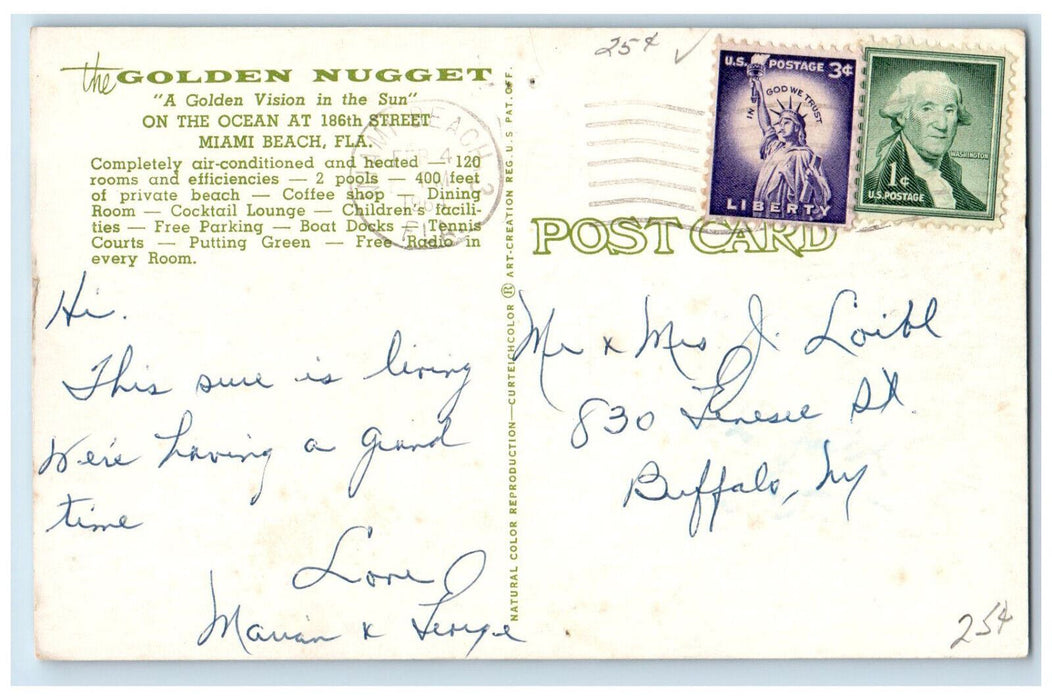 the GOLDEN NUGGET
"A Golden Vision in the Sun"
ON THE OCEAN AT 186th STREET
MIAMI BEACH, FLA.
Completely air-conditioned and heated — 120
rooms and efficiencies — 2 pools — 400 feet
of private beach — Coffee shop — Dining
Room — Cocktail Lounge — Children's facili-
ties — Free Parking — Boat Docks — Tennis
Courts — Putting Green — Free Radio in
every Room.
Hi.
This sure is living
We're having a grand
time
Love
Marian & George
NATURAL COLOR REPRODUCTION—CURTEICHCOLOR ® ART-CREATION REG. U.S. PAT. OFF.
25¢ ✓
U.S. POSTAGE 3¢
IN GOD WE TRUST
LIBERTY
WASHINGTON
1¢
U.S. POSTAGE
MIAMI BEACH
POST CARD
Mr & Mrs J. Loibl
830 Genesee St.
Buffalo, Ny
25¢